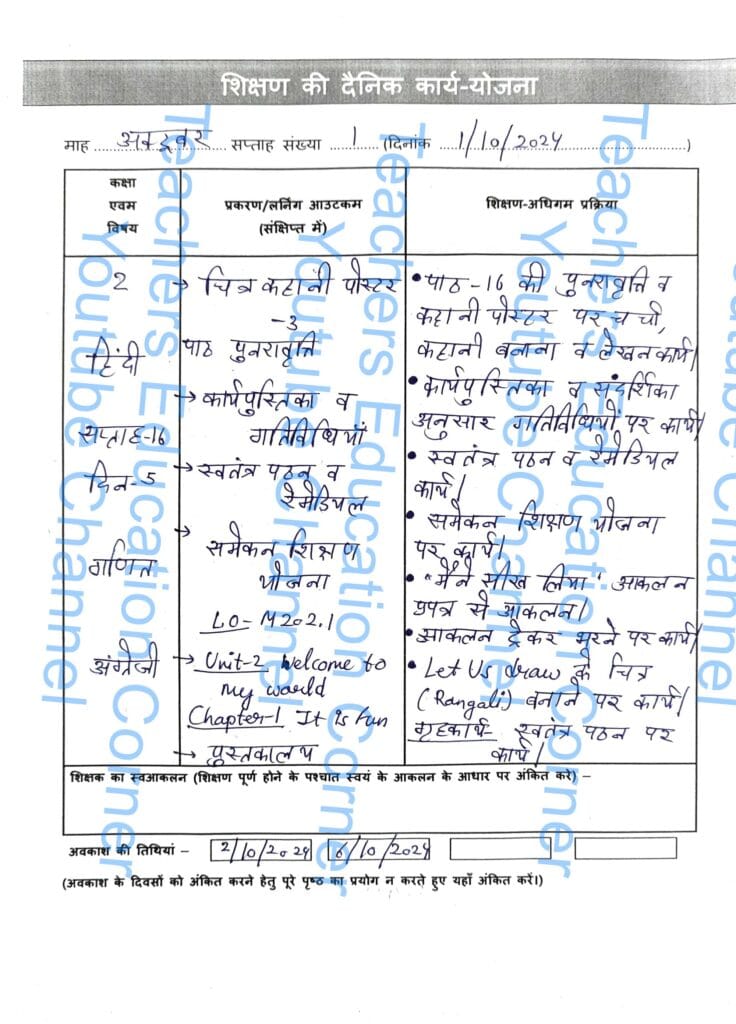 शिक्षण की दैनिक कार्य-योजना
माह ...अक्टूबर... सप्ताह संख्या ...1... (दिनांक ...1/10/2024...)
कक्षा
एवम
विषय
प्रकरण/लर्निंग आउटकम
(संक्षिप्त में)
शिक्षण-अधिगम प्रक्रिया
2
हिंदी
सप्ताह-16
दिन-5
→ चित्र कहानी पोस्टर
-3
पाठ पुनरावृत्ति
→ कार्यपुस्तिका व
गतिविधियाँ
→ स्वतंत्र पठन व
रेमेडियल
• पाठ-16 की पुनरावृत्ति व
कहानी पोस्टर पर चर्चा,
कहानी बनाना व लेखन कार्य।
• कार्यपुस्तिका व संदर्शिका
अनुसार गतिविधियों पर कार्य।
• स्वतंत्र पठन व रेमेडियल
कार्य।
गणित
→ समेकन शिक्षण
योजना
LO- M202.1
• समेकन शिक्षण योजना
पर कार्य।
• "मैंने सीख लिया" आकलन
प्रपत्र से आकलन।
• आकलन ट्रेकर भरने पर कार्य।
अंग्रेजी
→ Unit-2 Welcome to
my world
Chapter-1 It is fun
→ पुस्तकालय
• Let Us draw के चित्र
(Rangali) बनाने पर कार्य।
गृहकार्य- स्वतंत्र पठन पर
कार्य।
शिक्षक का स्वआकलन (शिक्षण पूर्ण होने के पश्चात स्वयं के आकलन के आधार पर अंकित करे) –
अवकाश की तिथियां – 2/10/2024 6/10/2024
(अवकाश के दिवसों को अंकित करने हेतु पूरे पृष्ठ का प्रयोग न करते हुए यहाँ अंकित करें।)
Teachers Education Corner
Youtube Channel
Teachers Education Corner
Youtube Channel
Teachers Education Corner
Youtube Channel